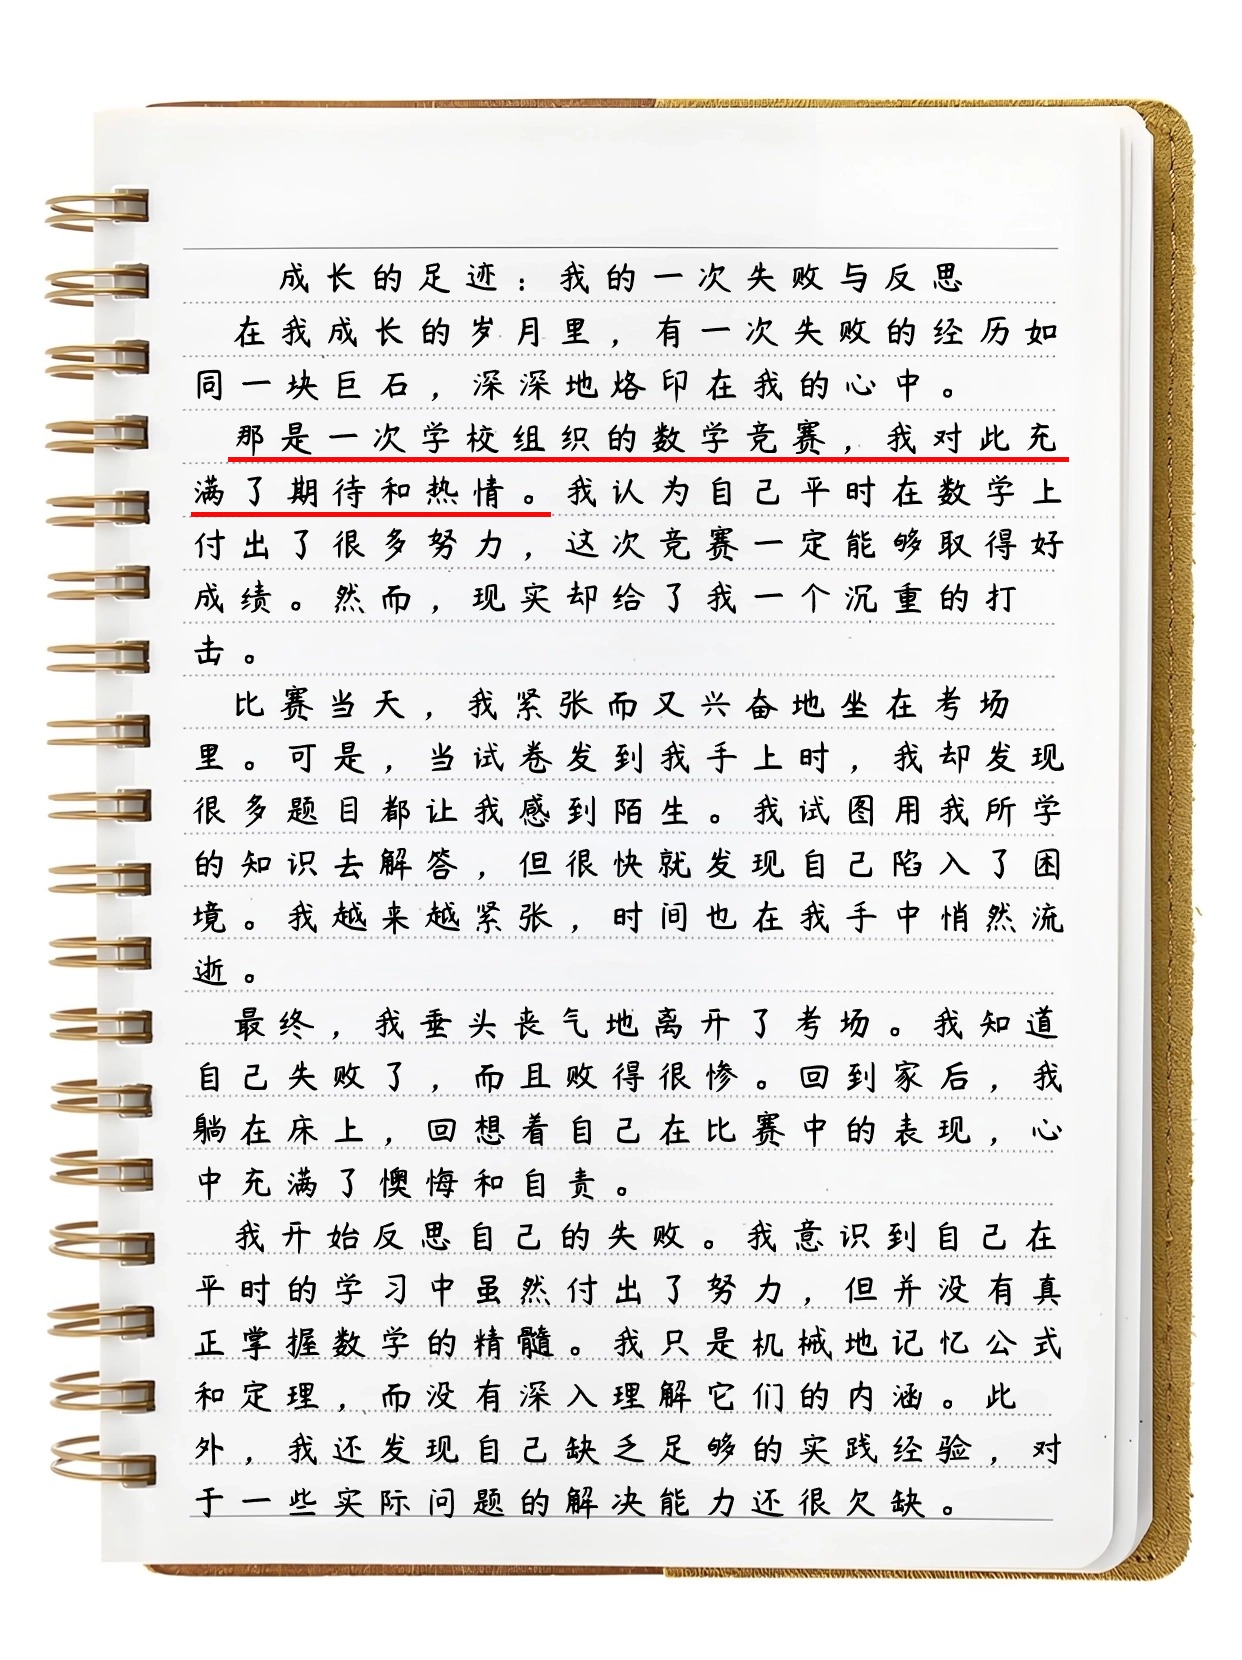 成长的足迹：我的一次失败与反思
在我成长的岁月里，有一次失败的经历如
同一块巨石，深深地烙印在我的心中。
那是一次学校组织的数学竞赛，我对此充
满了期待和热情。我认为自己平时在数学上
付出了很多努力，这次竞赛一定能够取得好
成绩。然而，现实却给了我一个沉重的打
击。
比赛当天，我紧张而又兴奋地坐在考场
里。可是，当试卷发到我手上时，我却发现
很多题目都让我感到陌生。我试图用我所学
的知识去解答，但很快就发现自己陷入了困
境。我越来越紧张，时间也在我手中悄然流
逝。
最终，我垂头丧气地离开了考场。我知道
自己失败了，而且败得很惨。回到家后，我
躺在床上，回想着自己在比赛中的表现，心
中充满了懊悔和自责。
我开始反思自己的失败。我意识到自己在
平时的学习中虽然付出了努力，但并没有真
正掌握数学的精髓。我只是机械地记忆公式
和定理，而没有深入理解它们的内涵。此
外，我还发现自己缺乏足够的实践经验，对
于一些实际问题的解决能力还很欠缺。